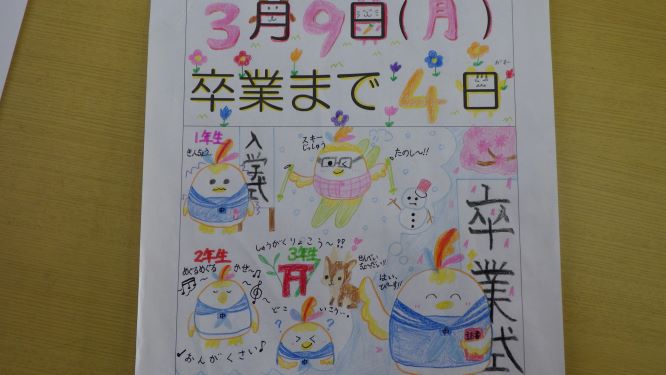 3月9日(月)
卒業まで4日
1年生
きんちょう
入学式
スキー
じっしゅう
たのし〜!!
卒業式
2年生
めぐるめぐる
かぜ〜♪
♪おんがくさい♪
しゅうがくりょこう〜!?
3年生
どこ
いこう…
?
?
せんでぃ
はい、
中
中